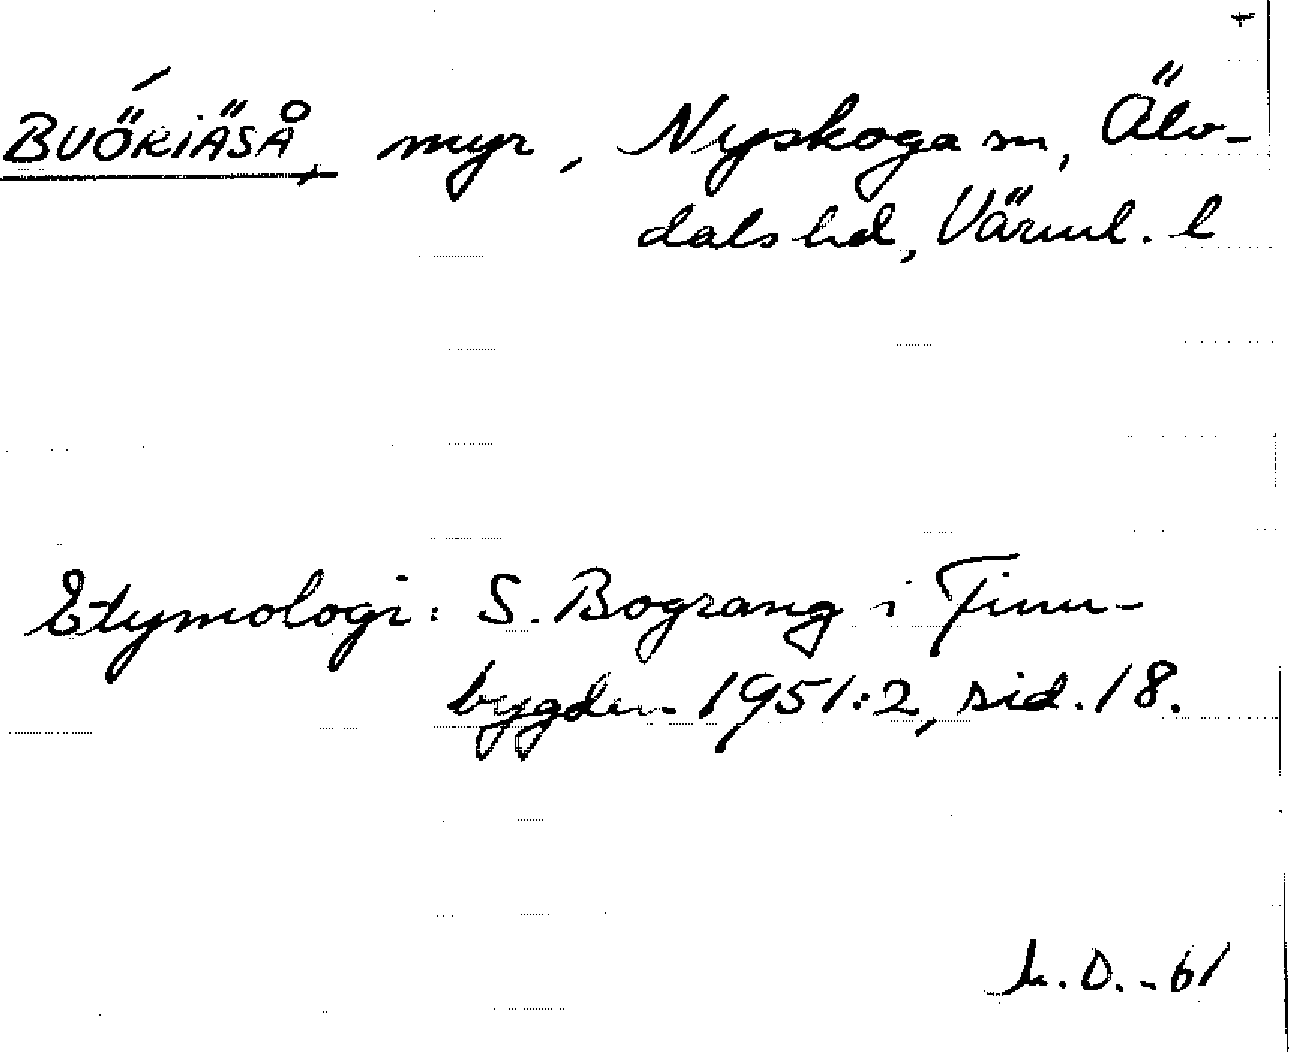 BUÖ́RIÄSÅ, myr, Nyskoga sn, Älv-
dals hd, Värml. l
Etymologi: S. Bograng i Finn-
bygden 1951:2, sid. 18.
D. -61